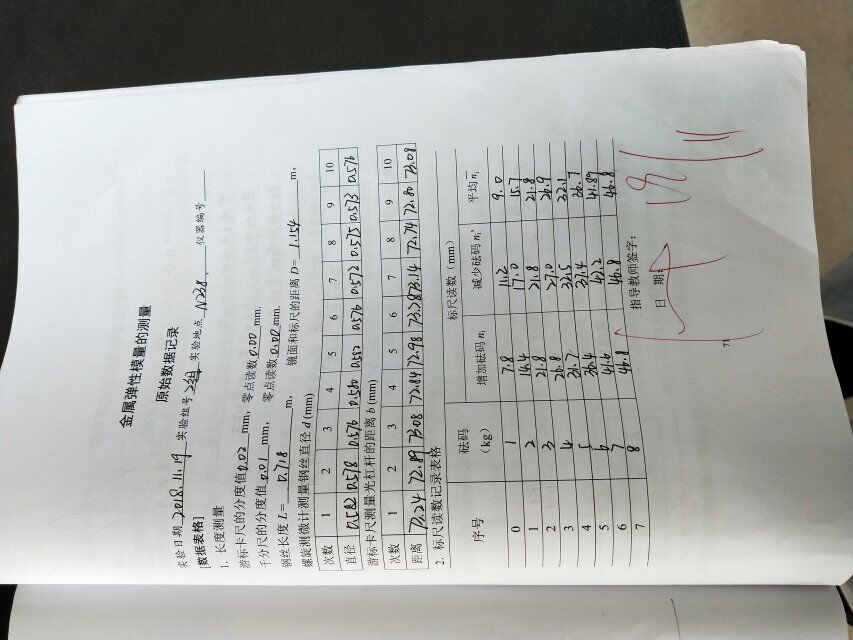 金属弹性模量的测量
原始数据记录
实验日期 2018.11.19 实验组号 实验地点 N238、 仪器编号
[数据表格]
1. 长度测量
游标卡尺的分度值0.02 mm, 零点读数0.00 mm.
千分尺的分度值0.01 mm, 零点读数0.00 mm.
钢丝长度 L= 0.718 m, 镜面和标尺的距离 D= 1.154 m,
螺旋测微计测量钢丝直径 d (mm)
次数 1 2 3 4 5 6 7 8 9 10
直径 0.582 0.578 0.576 0.580 0.582 0.576 0.572 0.575 0.573 0.576
游标卡尺测量光杠杆的距离 b (mm)
次数 1 2 3 4 5 6 7 8 9 10
距离 73.24 72.89 73.08 72.84 72.98 73.28 73.14 72.74 72.80 73.08
2. 标尺读数记录表格
序号 砝码 (kg) 标尺读数 (mm)
增加砝码 nᵢ 减少砝码 nᵢ' 平均 n̄ᵢ
0 1 7.8 11.2 9.0
1 2 14.4 17.0 15.7
2 3 21.8 21.8 21.8
3 4 26.8 27.0 26.9
4 5 31.7 32.5 32.1
5 6 36.4 37.4 36.7
6 7 41.6 42.2 41.89
7 8 46.8 46.8 46.8
指导教师签字:
日 期:
71